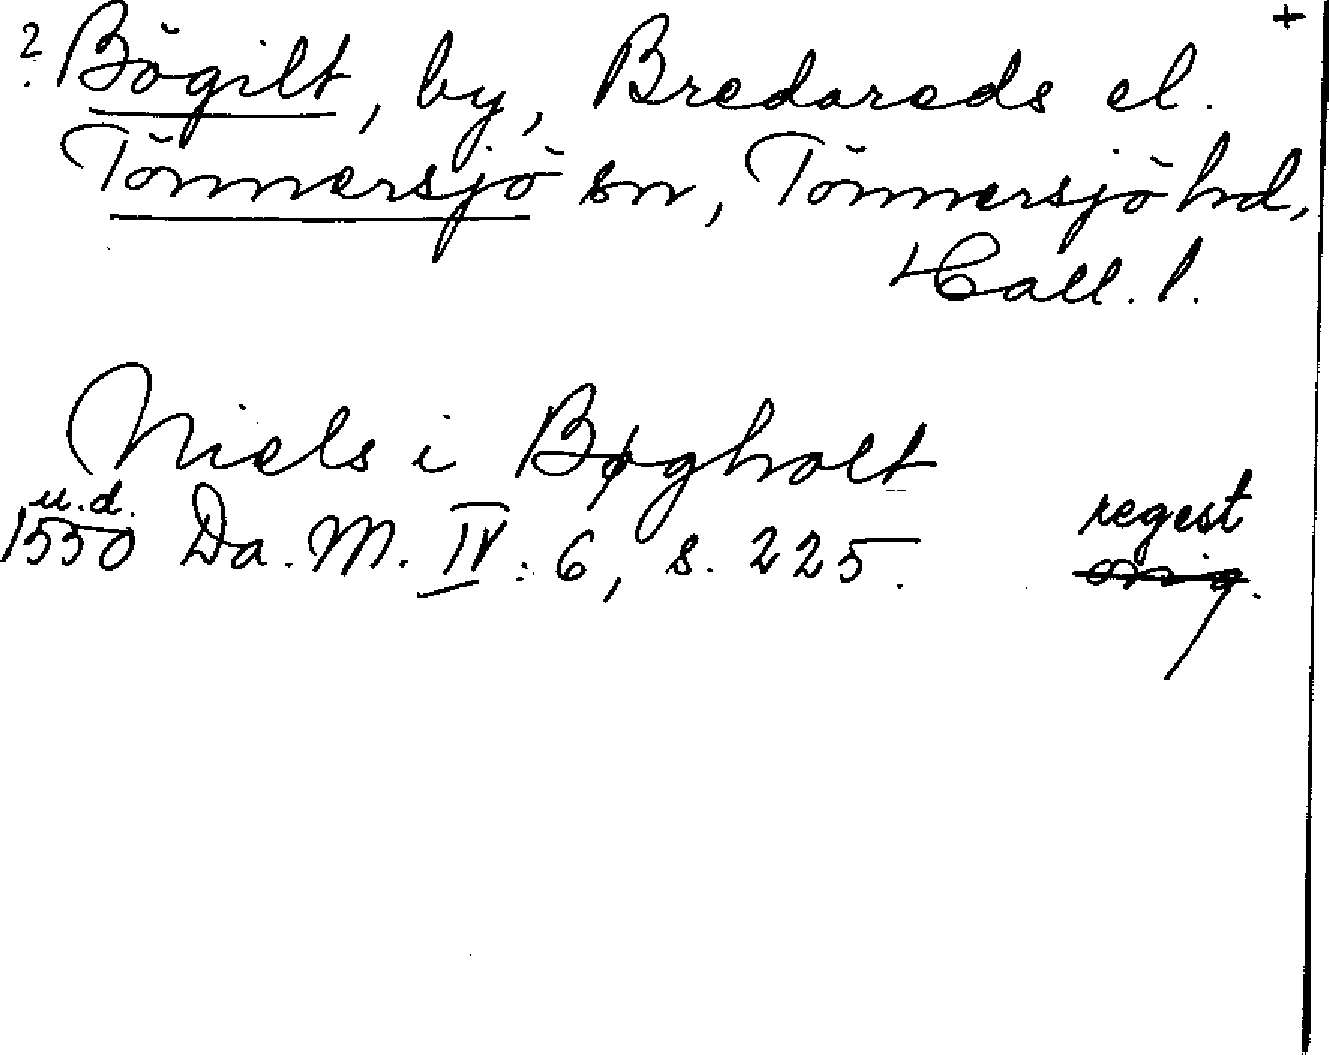 ? Bögilt, by, Bredareds el. +
Tönnersjö sn, Tönnersjö hd,
Hall. l.
Niels i Bøgholt
u.d. regest
1550 Da. M. IV: 6, s. 225. orig.